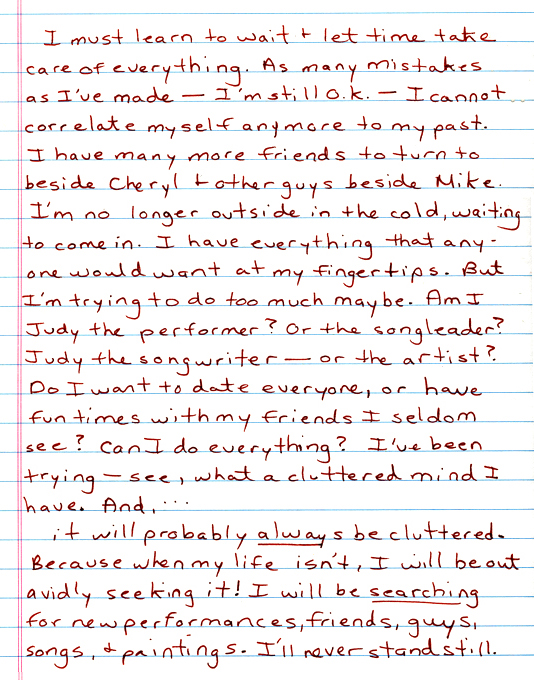 I must learn to wait + let time take
care of everything. As many mistakes
as I've made — I'm still o.k. — I cannot
correlate myself anymore to my past.
I have many more friends to turn to
beside Cheryl + other guys beside Mike.
I'm no longer outside in the cold, waiting
to come in. I have everything that any-
one would want at my fingertips. But
I'm trying to do too much maybe. Am I
Judy the performer? Or the songleader?
Judy the songwriter — or the artist?
Do I want to date everyone, or have
fun times with my friends I seldom
see? Can I do everything? I've been
trying — see, what a cluttered mind I
have. And, ...
it will probably always be cluttered.
Because when my life isn't, I will be out
avidly seeking it! I will be searching
for new performances, friends, guys,
songs, + paintings. I'll never stand still.